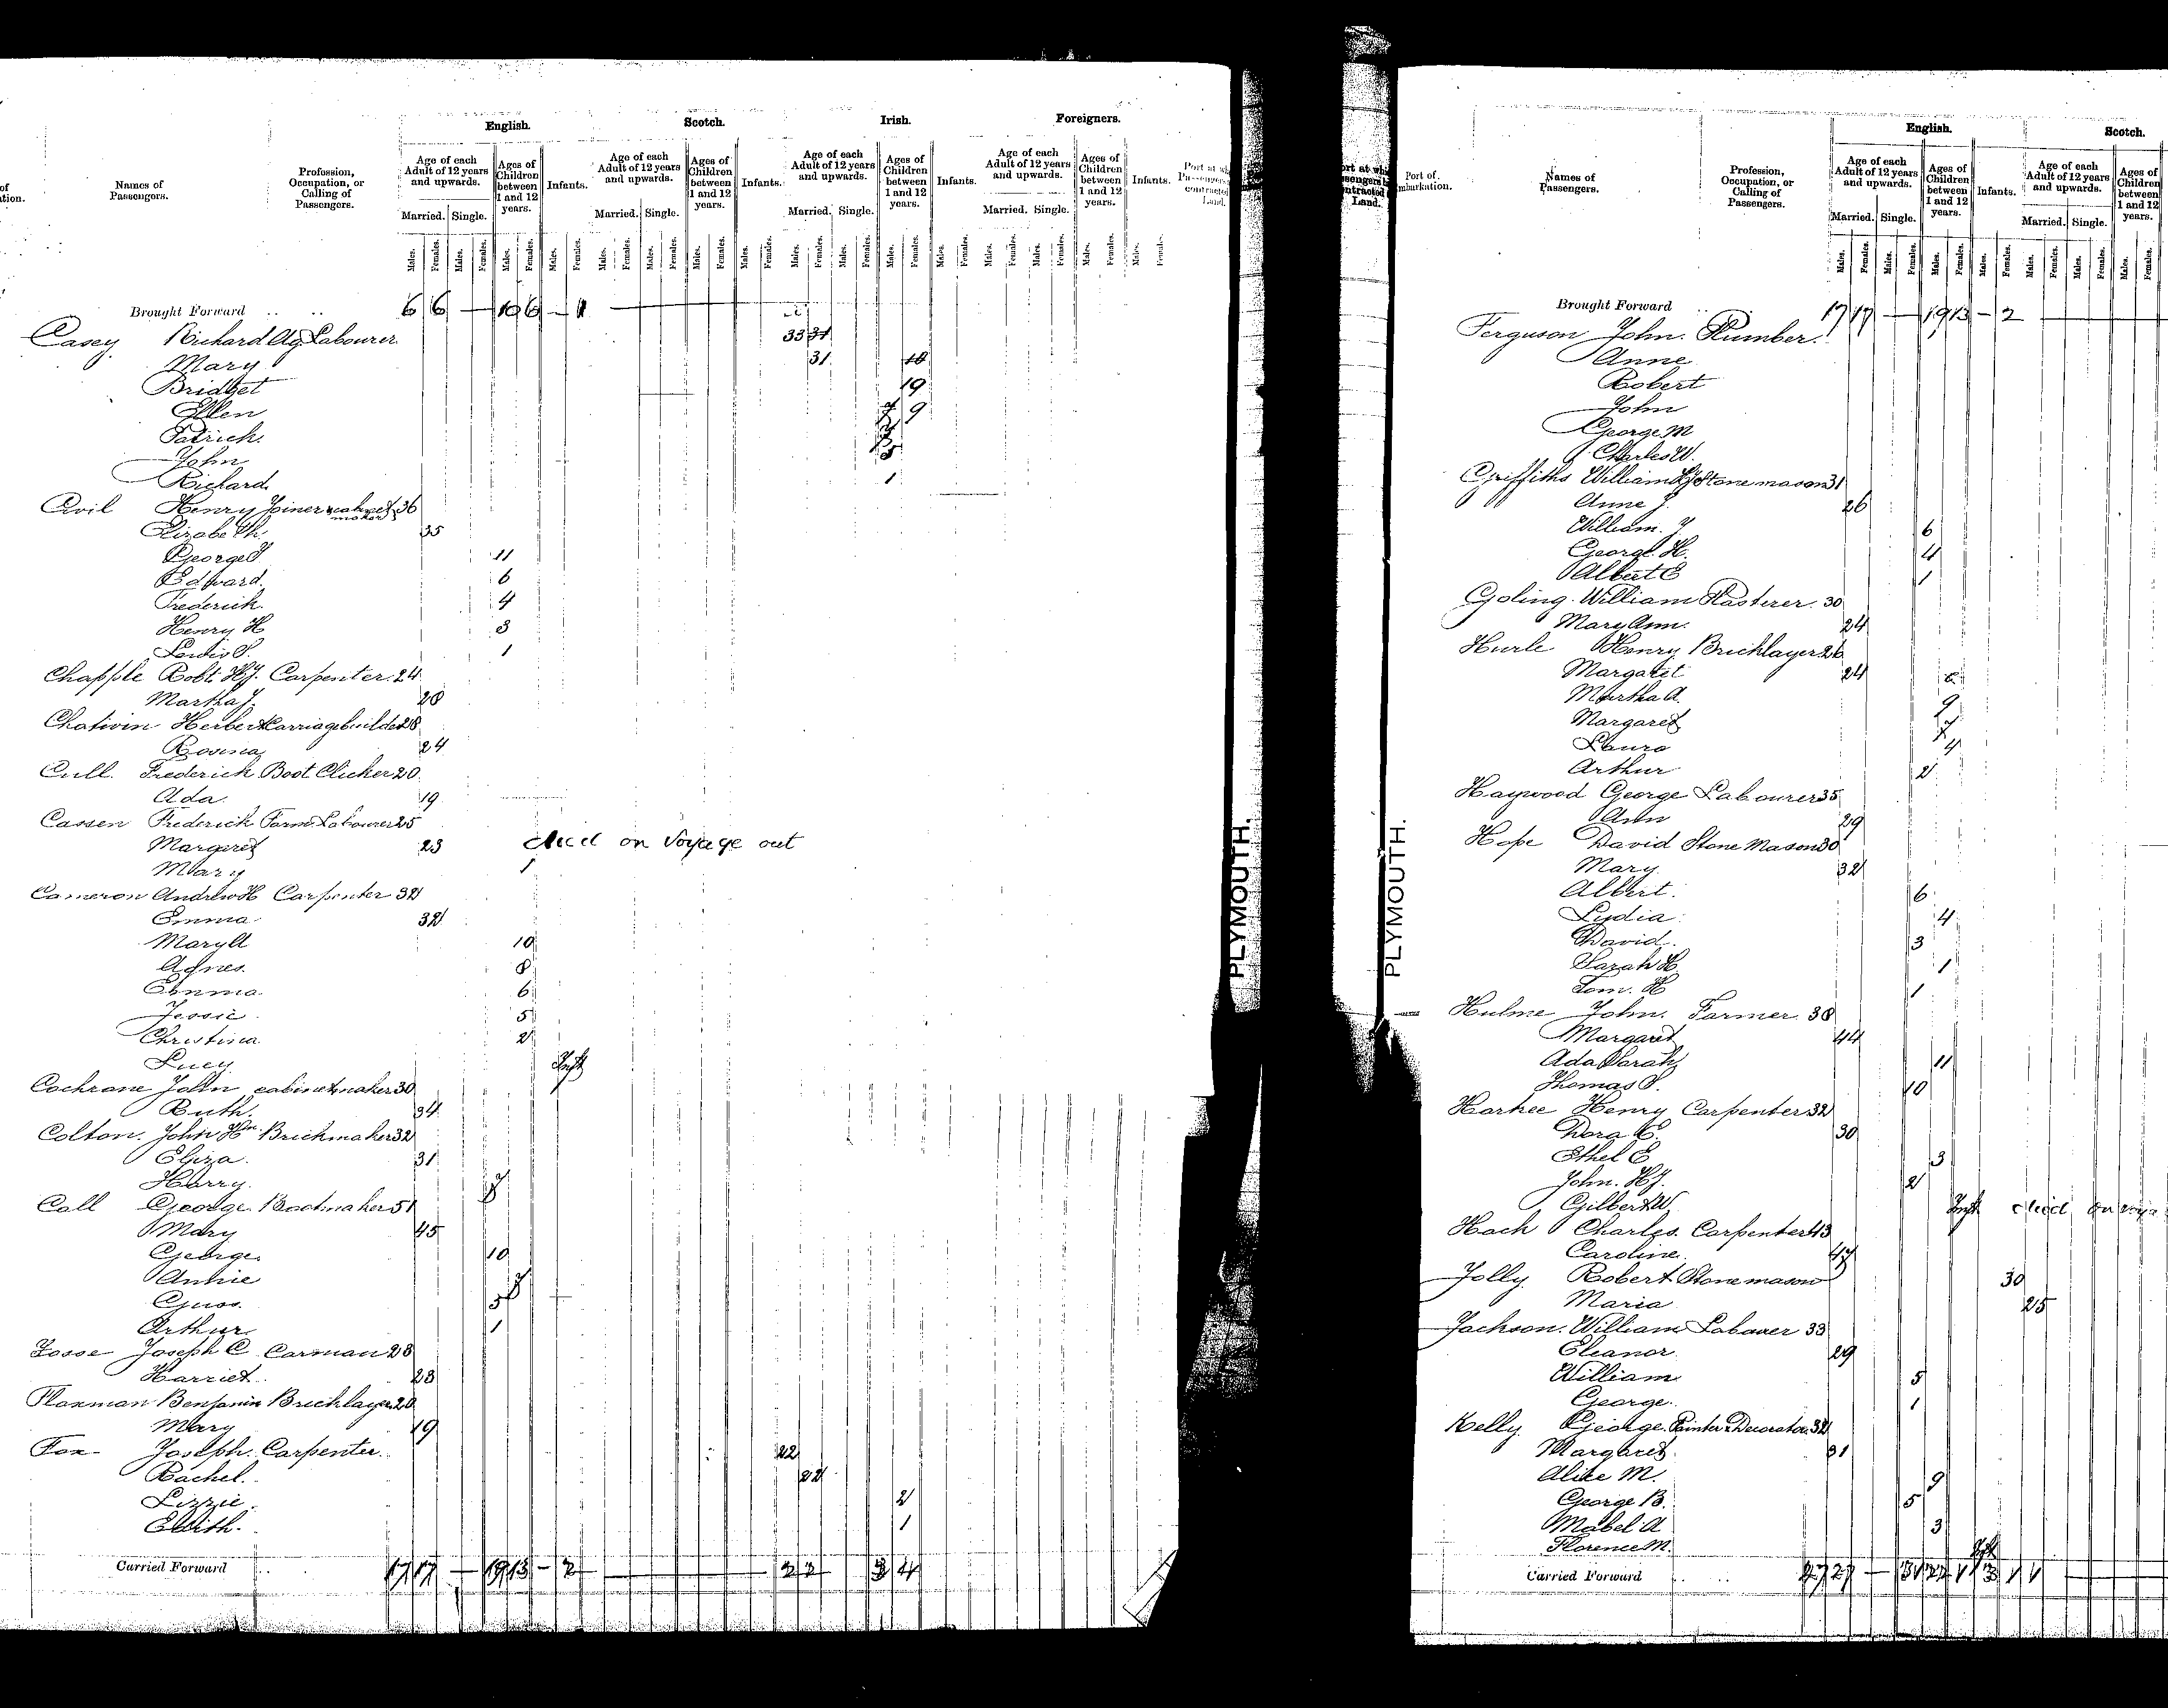 English. Scotch. Irish. Foreigners.
Names of Passengers. Profession, Occupation, or Calling of Passengers. Age of each Adult of 12 years and upwards. Ages of Children between 1 and 12 years. Infants. Age of each Adult of 12 years and upwards. Ages of Children between 1 and 12 years. Infants. Age of each Adult of 12 years and upwards. Ages of Children between 1 and 12 years. Infants. Age of each Adult of 12 years and upwards. Ages of Children between 1 and 12 years. Infants.
Married. Single. Married. Single. Married. Single. Married. Single.
Males. Females. Males. Females. Males. Females. Males. Females. Males. Females. Males. Females. Males. Females. Males. Females. Males. Females. Males. Females. Males. Females. Males. Females. Males. Females. Males. Females. Males. Females. Males. Females.
Brought Forward 6 6
Casey Richard Ag Labourer
Mary 31
Bridget
Ellen 9
Patrick
John
Richard 1
Henry Joiner 36
Elizabeth 35
George 11
Edward 6
Frederick 4
Henry H 3
Louis 1
Chapple Robt. Hy. Carpenter 24
Martha J. 20
Herbert Carriagebuilder 28
Rosina 24
Cull. Frederick Boot Clicker 20
Ada 19
Cassen Frederick Farm Labourer 25
Margaret 23 died on Voyage out
Mary 1
Cameron Andrew H Carpenter 32
Emma 32
Mary A 10
Agnes 8
Emma 6
Jessie 5
Christina 2
Lucy Inft
Cochrane John cabinetmaker 30
Ruth. 34
Colton. John Hn. Brickmaker 32
Eliza. 31
Harry. 7
Call George. Bootmaker 51
Mary 45
George. 10
Annie 7
5
Arthur 1
Fosse Joseph C Carman 28
Harriet 23
Flaxman Benjamin Bricklayer 20
Mary 19
Fox Joseph. Carpenter 22
Rachel. 22
Lizzie 2
Edith. 1
Carried Forward 17 17 — 19 13 — 2 2 2 3 4
PLYMOUTH.
PLYMOUTH.
English. Scotch.
Port of Embarkation. Names of Passengers. Profession, Occupation, or Calling of Passengers. Age of each Adult of 12 years and upwards. Ages of Children between 1 and 12 years. Infants. Age of each Adult of 12 years and upwards. Ages of Children between 1 and 12 years.
Married. Single. Married. Single.
Males. Females. Males. Females. Males. Females. Males. Females. Males. Females. Males. Females. Males. Females.
Brought Forward 17 17 — 19 13 — 2
Ferguson John. Plumber.
Anne
Robert
John
George M
Charles W.
Griffiths William Hy Stone mason 31
Anne J. 26
William. J 6
George H. 4
Albert E 1
Goling. William Plasterer. 30
Mary Ann. 24
Hurle Henry Bricklayer 26
Margaret 24
Martha A.
Margaret
Laura
Arthur 2
Haywood George Labourer 35
Ann 29
Hope David Stone Mason 30
Mary 32
Albert. 6
Lydia 4
David. 3
Sarah H 1
Tom. H 1
Hulme John. Farmer 38
Margaret 44
Ada Sarah 11
Thomas 10
Harkee Henry Carpenter 32
Dora E. 30
Ethel E 3
John. Hy. 2
Gilbert W Inft died on
Hach Charles. Carpenter 43
Caroline. 47
Jolly. Robert Stone mason 30
Maria 25
Jackson. William Labourer 33
Eleanor 29
William 5
George. 1
Kelly. George. Painter & Decorator 32
Margaret 31
Alice M. 9
George B. 5
Mabel A 3
Florence M. Inft
Carried Forward 27 27